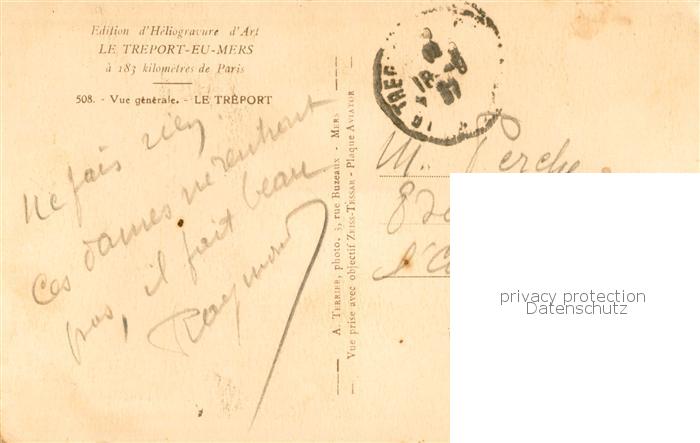 Edition d'Héliogravure d'Art
LE TREPORT-EU-MERS
à 183 kilomètres de Paris
508. - Vue générale. - LE TRÉPORT
Ne fais rien.
Ces dames ne rentront
pas, il fait beau
Raymond
A. TERRIER, photo. 3, rue Buzeaux - MERS
Vue prise avec objectif ZEISS-TESSAR - Plaque AVIATOR
LE TREP
18
M. Perche
privacy protection
Datenschutz